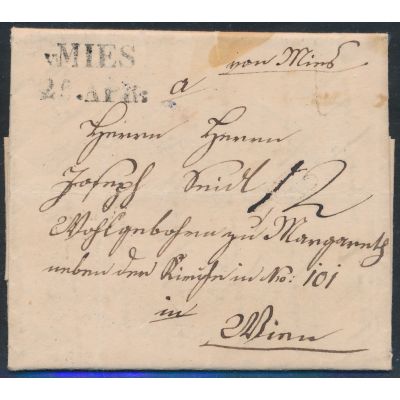 v. MIES
25. APR:
von Mies
a
Herrn Herrn
Joseph Seidl
12
Wohlgebohrn zu Margareth
neben der Kirche in No: 101
in
Wien